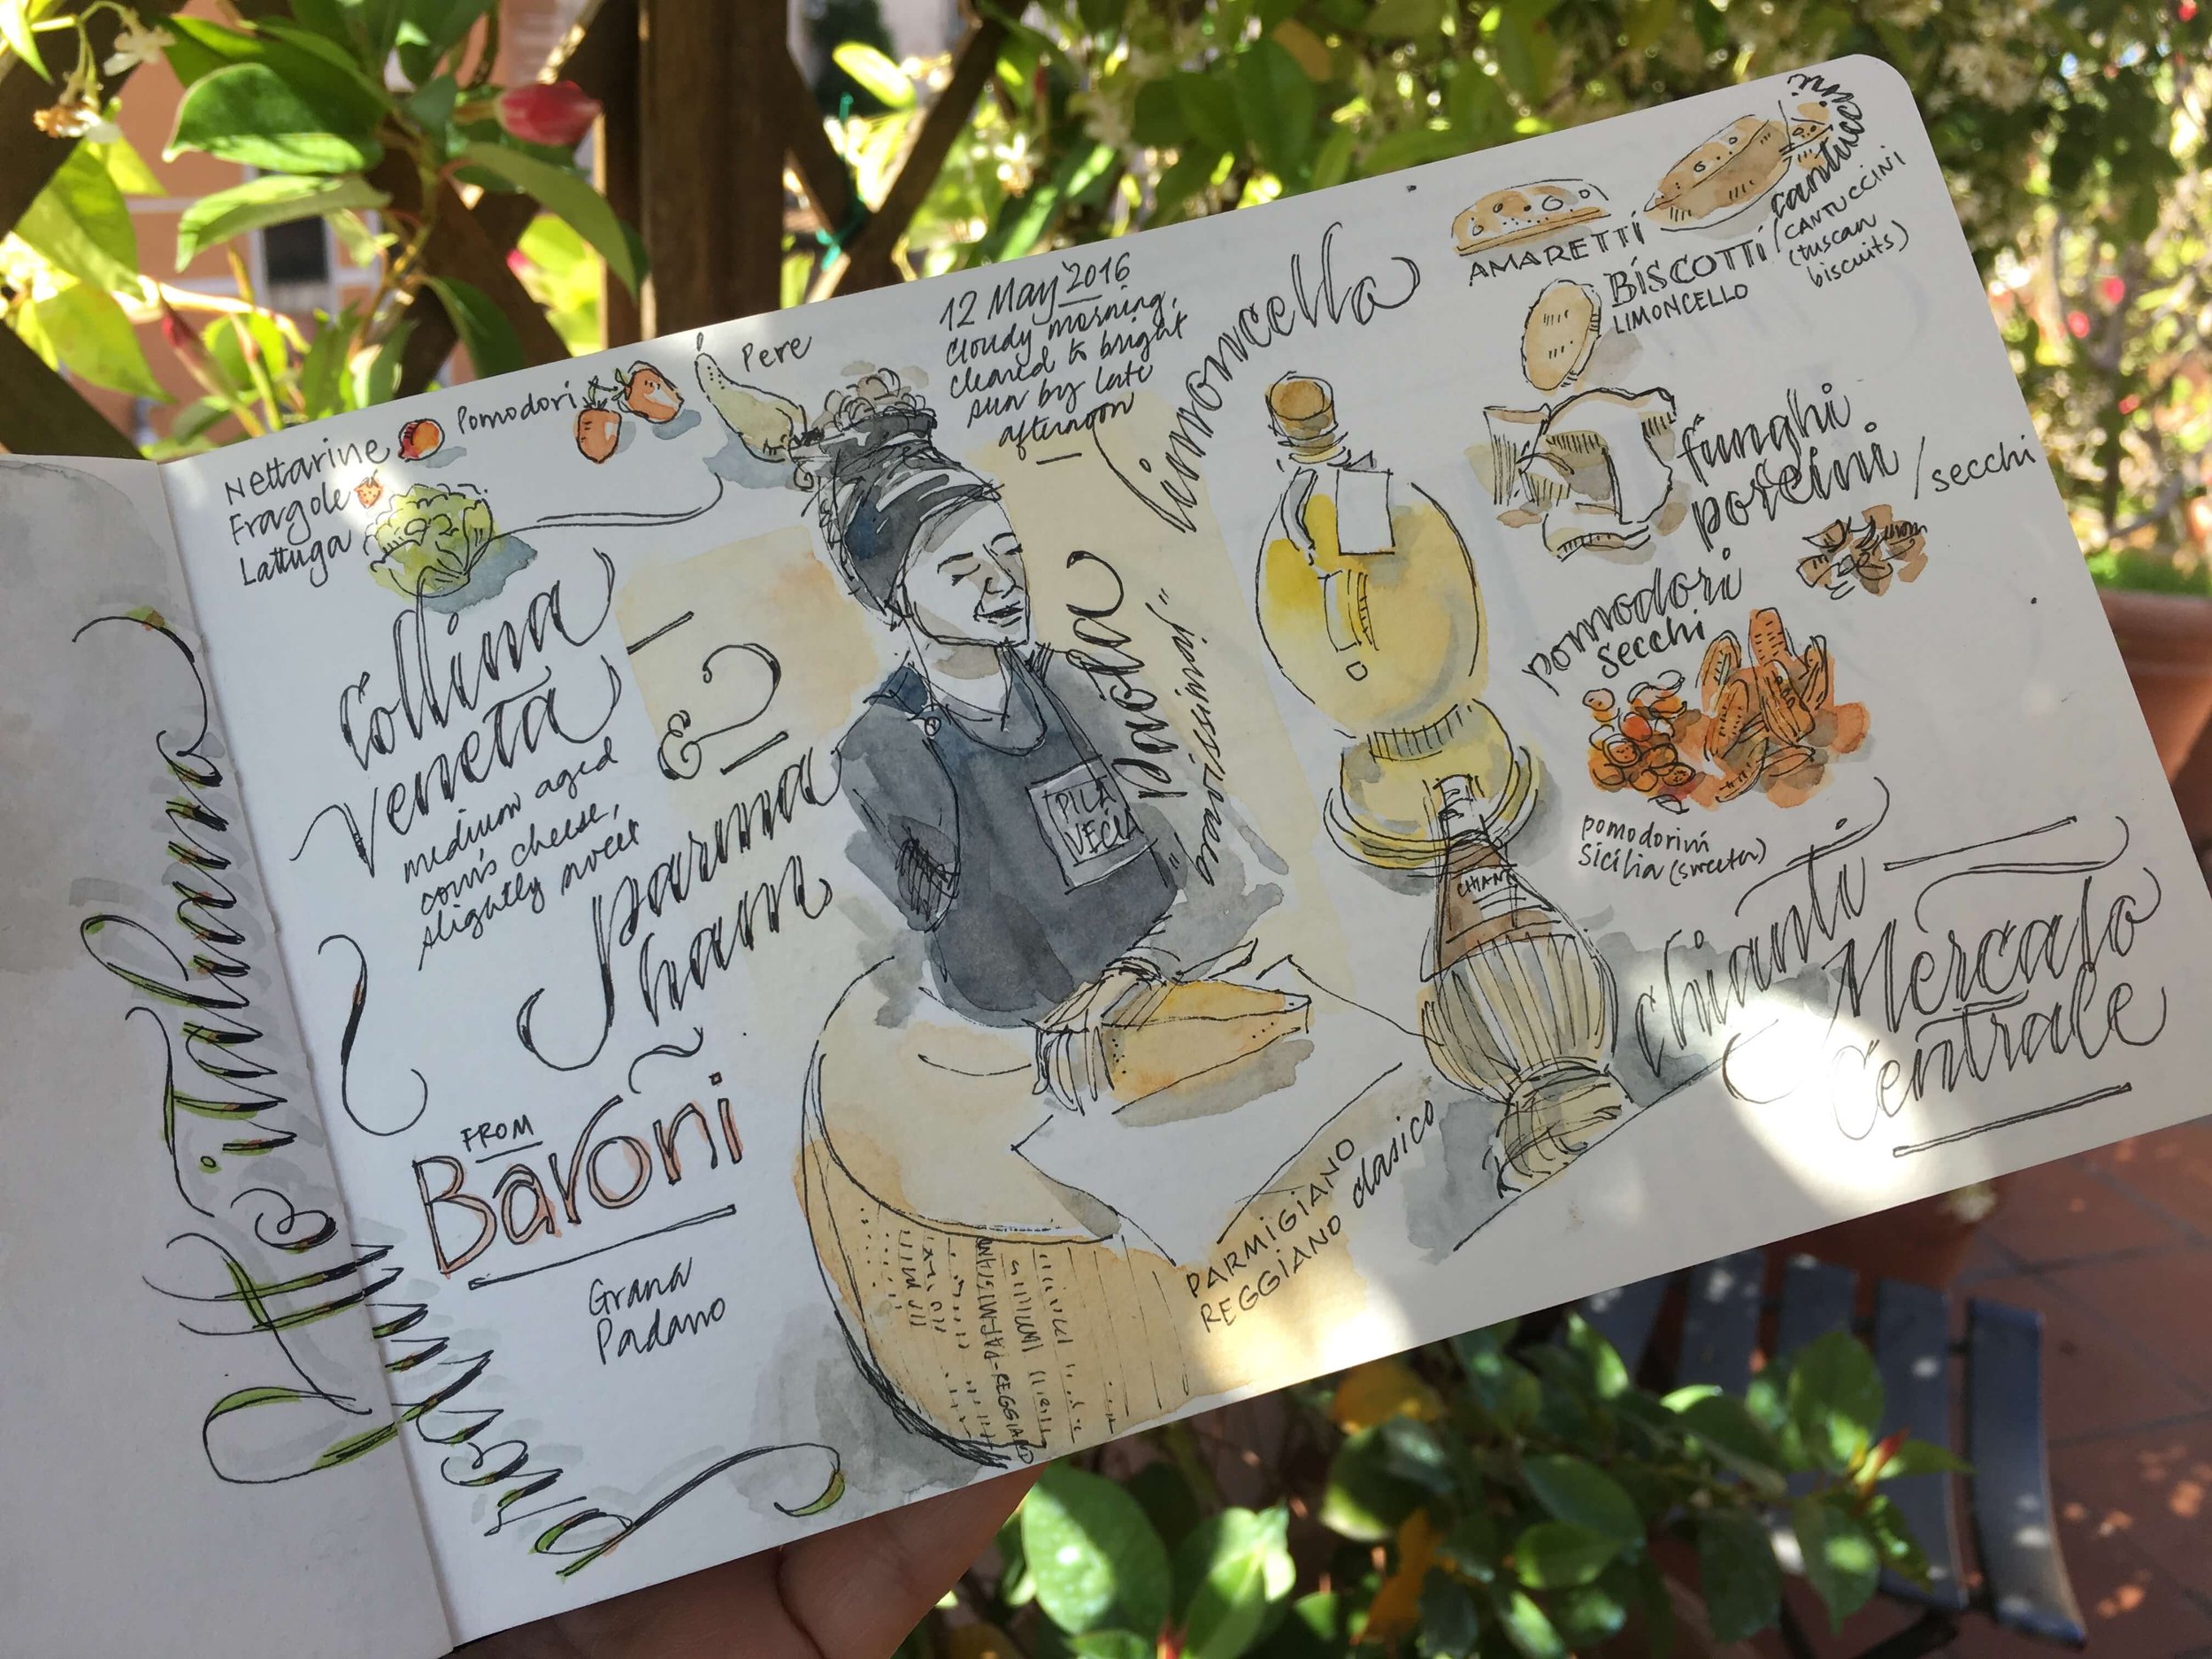 Nettarine
Fragole
Lattuga
Pomodori
Pere
12 May 2016
cloudy morning,
cleared to bright
sun by late
afternoon
Collina
Veneta
medium aged
cow's cheese,
slightly sweet
&
Parma
ham
FROM
Baroni
Grana
Padano
Paola
"bravissima!"
PILA
VECIA
PARMIGIANO-REGGIANO
PARMIGIANO
REGGIANO clasico
Limoncello
AMARETTI
BISCOTTI
LIMONCELLO
cantuccini
/CANTUCCINI
(tuscan
biscuits)
funghi
porcini / secchi
pomodori
secchi
pomodorini
Sicilia (sweeter)
CHIANTI
chianti
Mercato
Centrale
italiano